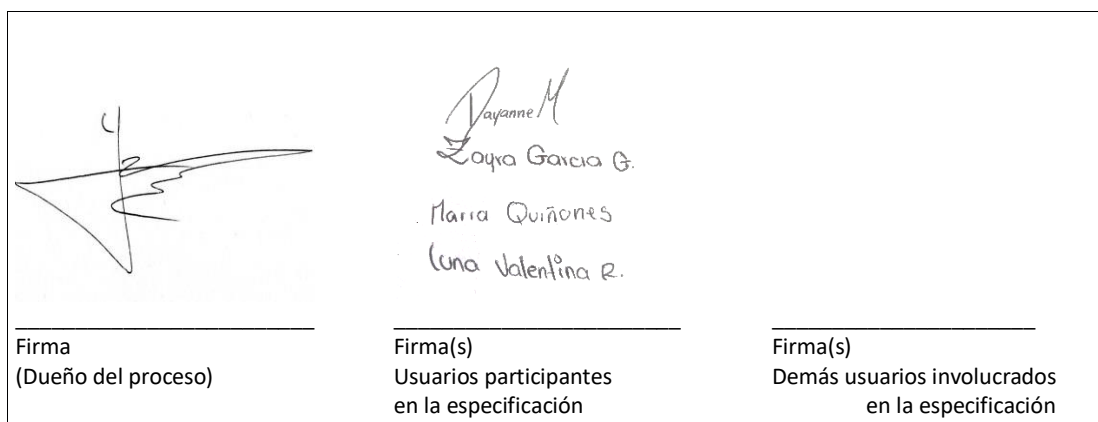 Dayanne M
Zayra Garcia G.
Maria Quiñones
Luna Valentina R.
Firma
(Dueño del proceso)
Firma(s)
Usuarios participantes
en la especificación
Firma(s)
Demás usuarios involucrados
en la especificación